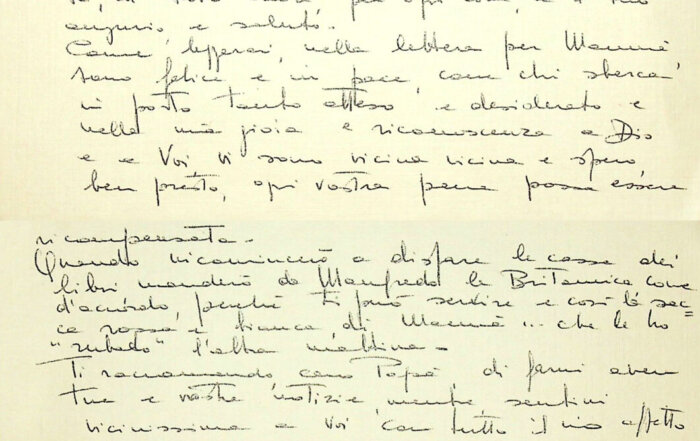 augurio e saluto.
Come leggerai, nella lettera per Mammà
sono felice e in pace come chi sbarca
in porto tanto atteso e desiderato e
nella mia gioia e riconoscenza a Dio
e a Voi, vi sono vicina vicina e spero
ben presto, ogni vostra pena possa essere
ricompensata.
Quando ricomincerò a disfare le casse dei
libri manderò da Manfredo la Britannica come
d'accordo, perchè ti può servire e così la sac=
ca rossa e bianca di Mammà... che le ho
"rubato" l'altra mattina.
Ti raccomando caro Papà di farmi avere
tue e vostre notizie mentre sentimi
vicinissima a Voi con tutto il mio affetto